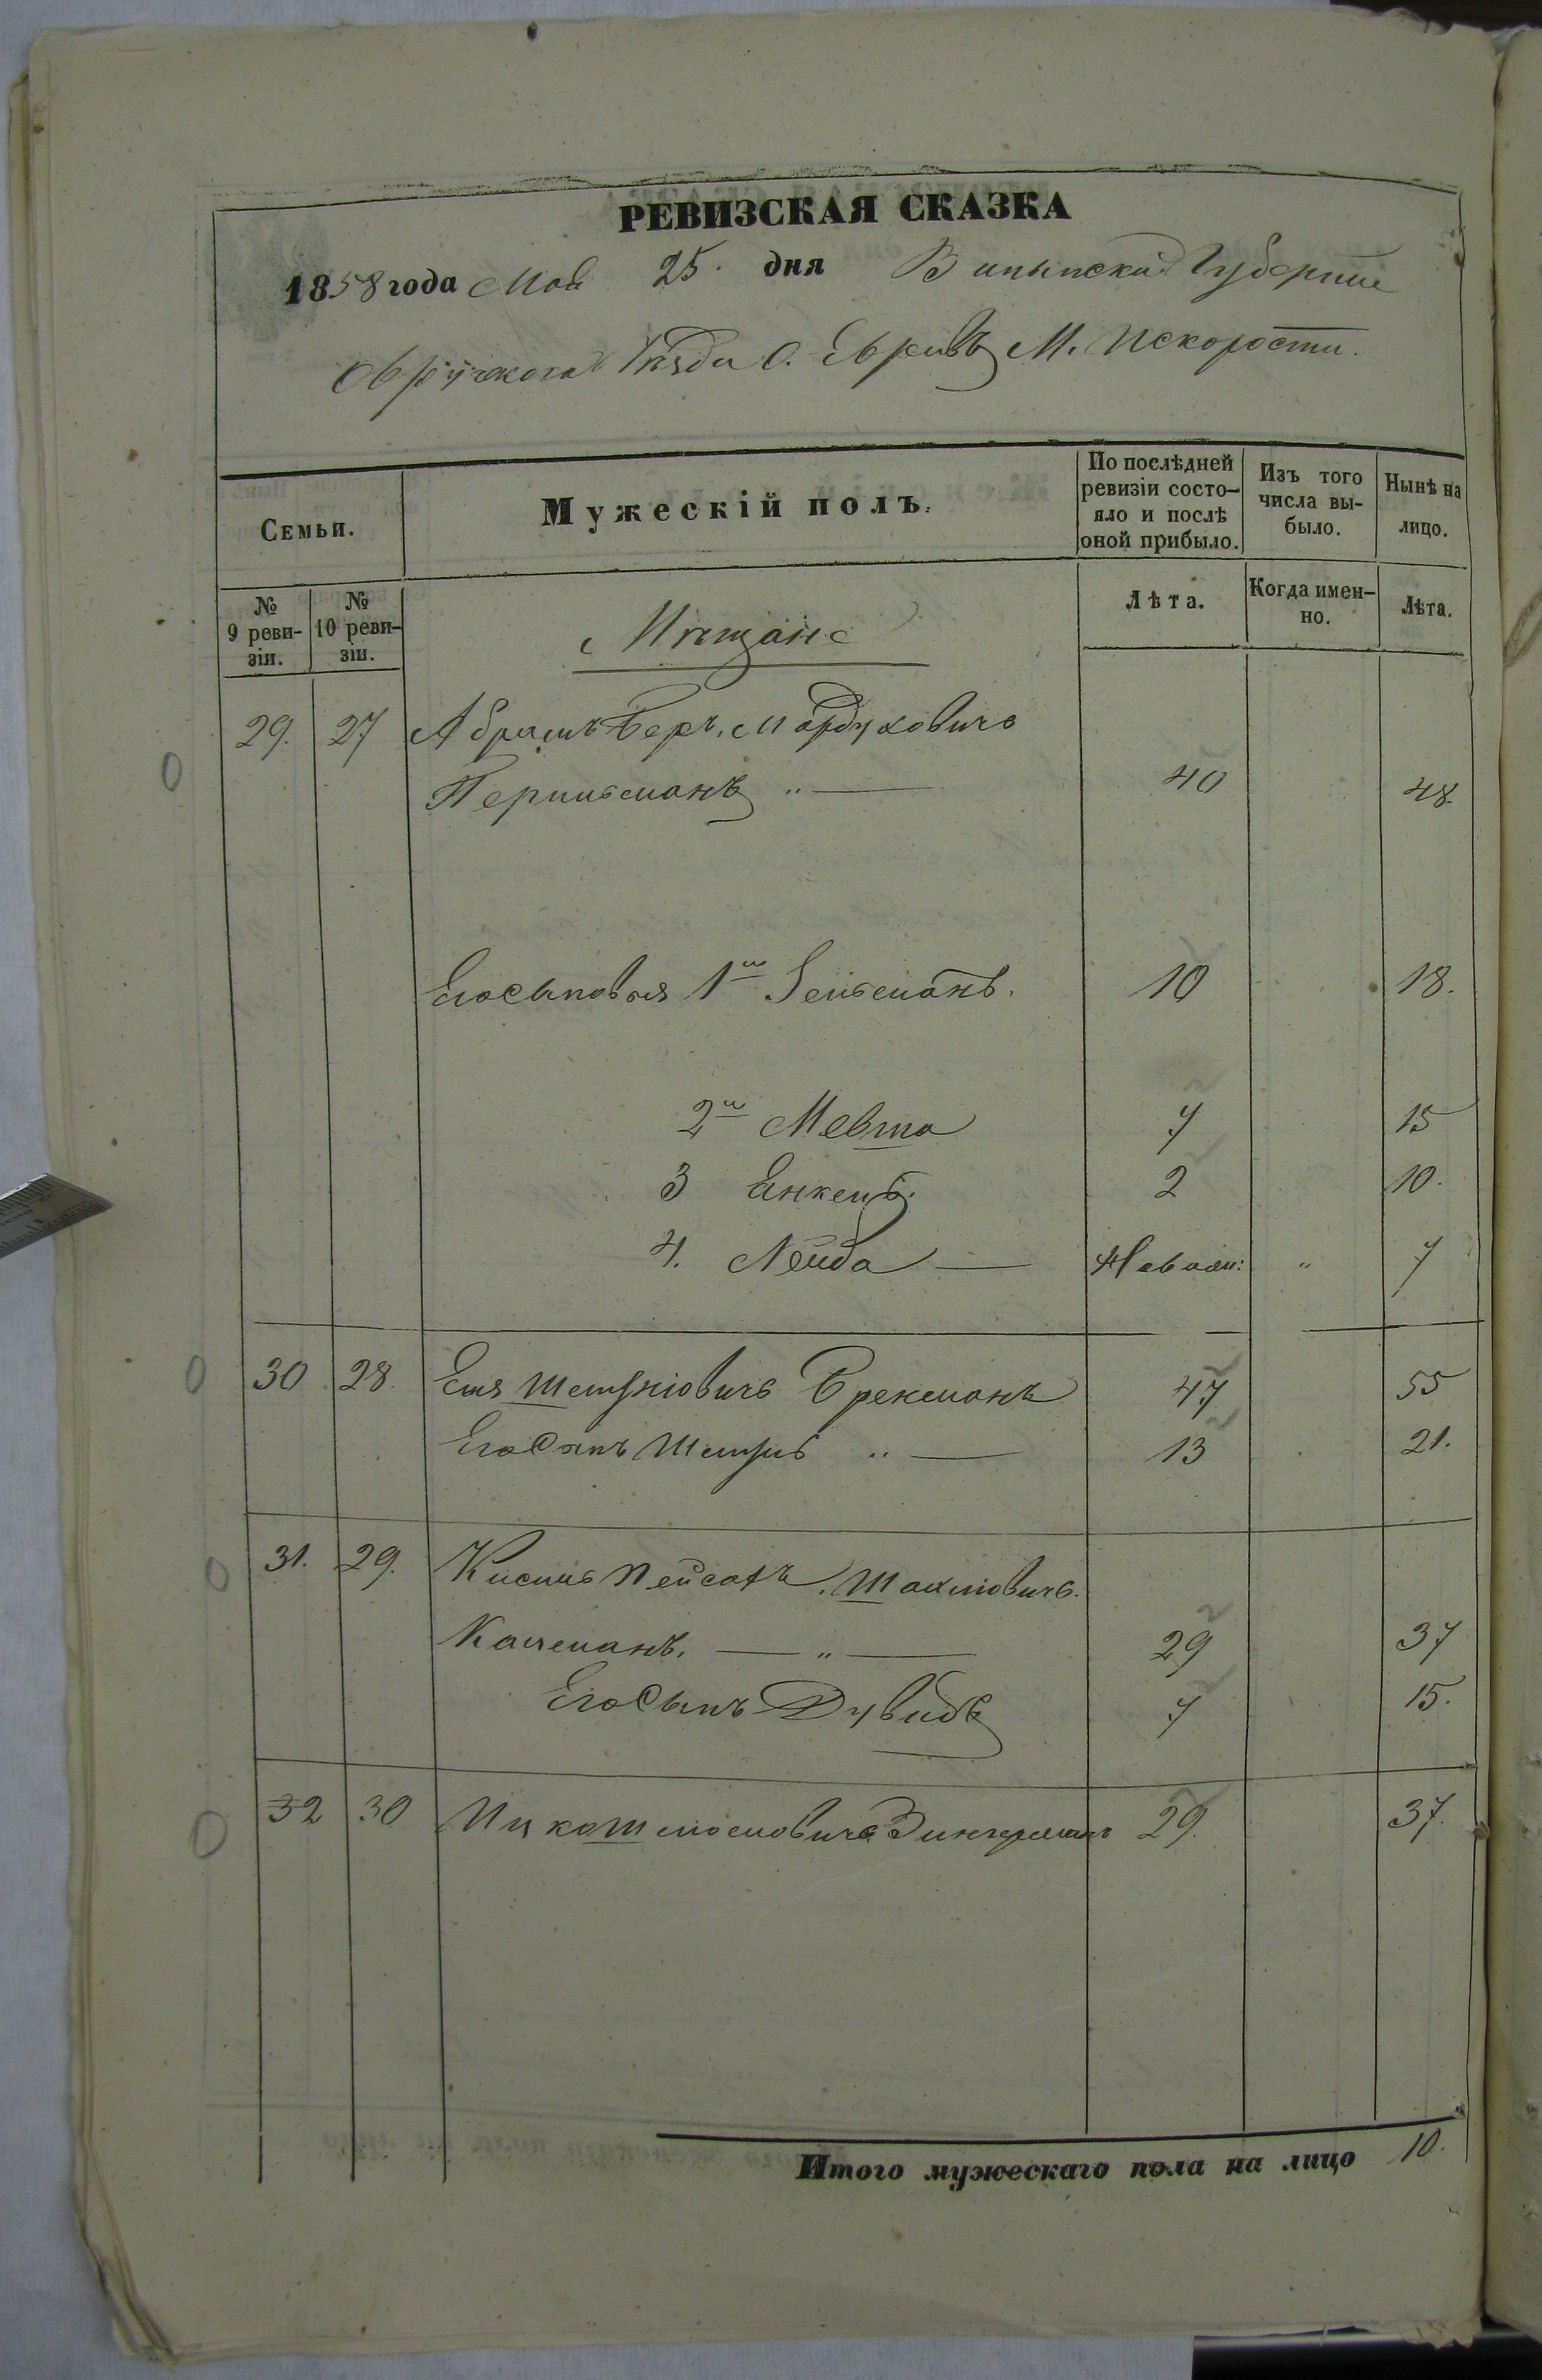 РЕВИЗСКАЯ СКАЗКА
1858 года Мая 25. дня Волынской Губернии
Овручского Уѣзда О. Евреевъ М. Искорости.
Семьи.
Мужескій полъ.
По послѣдней ревизіи состояло и послѣ оной прибыло.
Изъ того числа выбыло.
Нынѣ на лицо.
№ 9 ревизіи.
№ 10 ревизіи.
Мѣщане
Лѣта.
Когда именно.
Лѣта.
29. 27 Абрамъ Беръ Мордуховичъ
Перельманъ " 40 48.
Его сыновья 1й Зельманъ. 10 18.
2й Мевша 7 15
3 Янкель. 2 10.
4. Лейба 7
30 28. Еля Шмулевичъ Брекманъ 47 55
Его Сынъ Шмуль " 13 21.
31. 29. Кисиль Пейсахъ
" 29 37
Его Сынъ Дувидъ 7 15.
32 30 Ицко Шлиомовичъ Зингерманъ 29. 37.
Итого мужескаго пола на лицо 10.